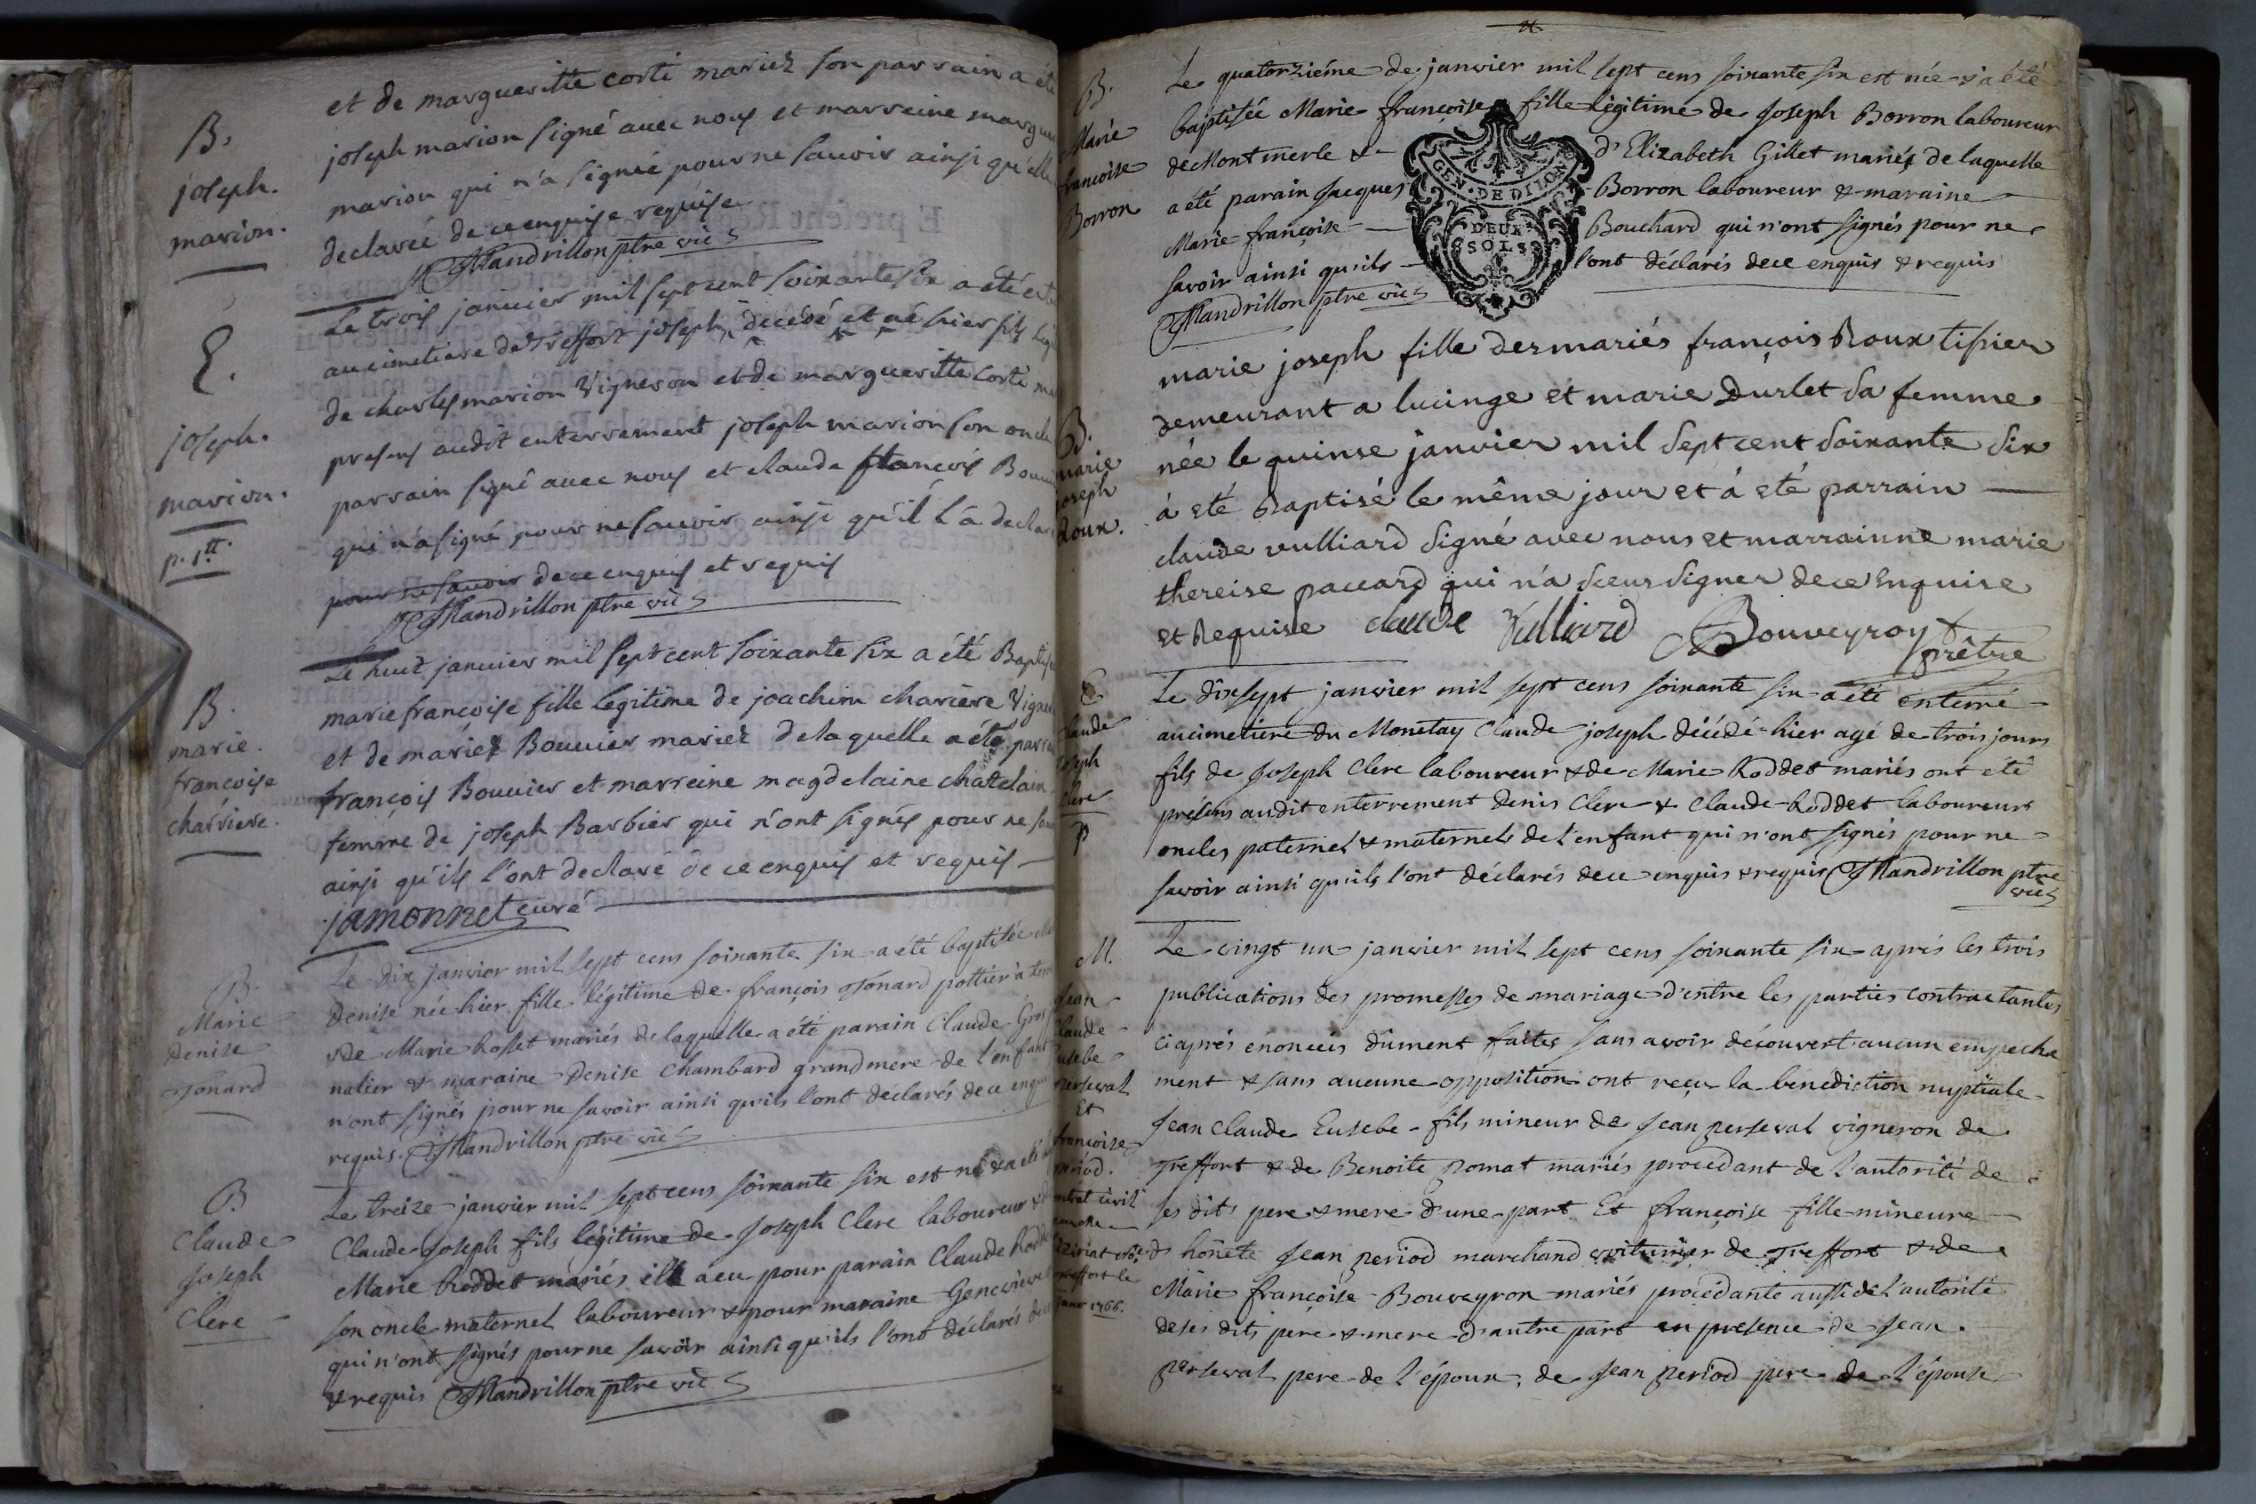 et de margueritte corti mariez son parrain a été
B.
joseph.
marion.
joseph marion signé avec nous et marreine margue
marion qui n'a signée pour ne sauvoir ainsi qu'elle
declareé de ce enquise requise
Mandrillon ptre vic
E.
joseph.
marion.
p. 1tt.
Le trois janvier mil sept cent soixante six a été ent
au cimetiere de treffort joseph decedé et né hier fils leg
de charles marion Vigneron et de margueritte Corti ma
presens audit enterrement joseph marion son oncle
parrain signé avec nous et claude françois Bouvi
qui n'a signé pour ne sauvoir ainsi qu'il l'a declaré
pour ne sauvoir de ce enquis et requis
Mandrillon ptre vic
B.
marie.
francoise
charriere.
Le huit janvier mil sept cent soixante six a été Baptisé
marie francoise fille legitime de joachim chariere Vigner
et de mariez Bouvier mariez de laquelle a été parrain
françois Bouvier et marreine magdelaine chattelain
femme de joseph Barbier qui n'ont signés pour ne sau
ainsi qu'ils l'ont declaré de ce enquis et requis
jamonnet curé
B.
Marie
Denise
Tonard
Le dix janvier mil sept cens soixante six a été baptisée
Denise née hier fille légitime de françois Tonard pottier à terre
& de Marie Rosset mariés de laquelle a été parain Claude Gros
nalier & maraine Denise Chambard grand mere de l'enfant
n'ont signés pour ne savoir ainsi qu'ils l'ont déclarés de ce enquis
requis. Mandrillon ptre vic
B.
Claude
Joseph
Clerc
Le treize janvier mil sept cens soixante six est né & a été
Claude Joseph fils légitime de Joseph Clerc laboureur & de
Marie Roddet mariés il a eu pour parain Claude Roddet
son oncle maternel laboureur & pour maraine Genevieve
qui n'ont signés pour ne savoir ainsi qu'ils l'ont déclarés de ce
& requis Mandrillon ptre vic
B.
Marie
francoise
Borron
Le quatorziéme de janvier mil sept cens soixante six est née & a été
baptisée Marie françoise fille légitime de Joseph Borron laboureur
de Montmerle & d'Elizabeth Gillet mariés de laquelle
a été parain Jacques Borron laboureur & maraine
Marie françoise Bouchard qui n'ont signés pour ne
savoir ainsi qu'ils l'ont déclarés de ce enquis & requis
Mandrillon ptre vic
GEN. DE DIJON
DEUX
SOLS
B.
marie
joseph
Roux.
marie joseph fille des mariés françois Roux tisier
demeurant a lucinge et marie Durlet sa femme
née le quinse janvier mil sept cent soixante six
à eté Baptisé le même jour et à eté parrain
claude vulliard signé avec nous et marrainne marie
thereise paccard qui n'a sceu signer de ce enquise
et Requise claude Vulliard Bouveyron prêtre
E
Claude
Joseph
Clerc
P
Le dix sept janvier mil sept cens soixante six a été enterré
au cimetiere du Monetay Claude joseph décédé hier agé de trois jours
fils de Joseph Clerc laboureur & de Marie Roddet mariés ont eté
presens audit enterrement Denis Clerc & Claude Roddet laboureurs
oncles paternel & maternels de l'enfant qui n'ont signés pour ne
savoir ainsi qu'ils l'ont déclarés de ce enquis & requis Mandrillon ptre
vic
M.
Jean
Claude
Eusebe
perseval
Et
francoise
period.
Le vingt un janvier mil sept cens soixante six aprés les trois
publications des promesses de mariage d'entre les parties contractantes
ci aprés énoncées dûment faites sans avoir découvert aucun empeche
ment & sans aucune opposition ont reçu la benediction nuptiale
Jean Claude Eusebe fils mineur de Jean perseval vigneron de
Treffort & de Benoite Romat mariés procédant de l'autorité de
ses dits pere & mere d'une part Et françoise fille mineure
d'honête Jean period marchand voiturier de Treffort & de
Marie françoise Bouveyron mariés procédante aussi de l'autorité
de ses dits pere & mere d'autre part en presence de Jean
perseval pere de l'époux, de Jean period pere de l'épouse
treffort le
janv 1766.